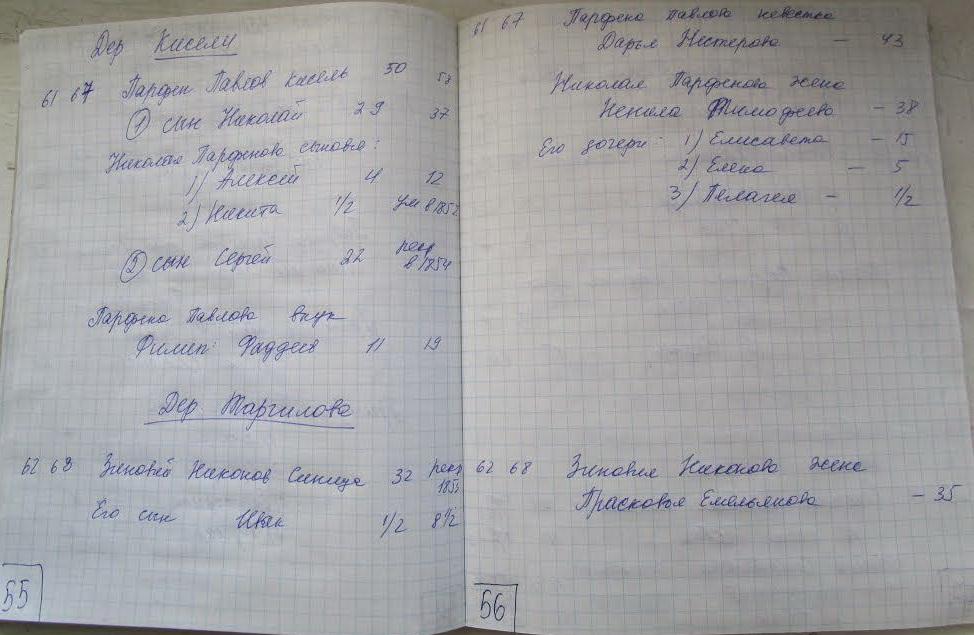 Дер Кисели
61 67 Парфен Павлов Кисель 50 58
1 сын Николай 29 37
Николая Парфенова сыновья:
1) Алексей 4 12
2) Никита 1/2 ум в 1852
2 сын Сергей 22 рекр в 1854
Парфена Павлова внук
Филип: Фаддеев 11 19
Дер Таргилова
62 68 Зиновей Никонов Синица 32 рекр 1855
Его сын Иван 1/2 8 1/2
55
61 67 Парфена Павлова невестка
Дарья Нестерова — 43
Николая Парфенова жена
Ненила Тимофеева — 38
Его дочери 1) Елисавета — 15
2) Елена — 5
3) Пелагея — 1/2
62 68 Зиновия Никонова жена
Прасковья Емельянова — 35
56